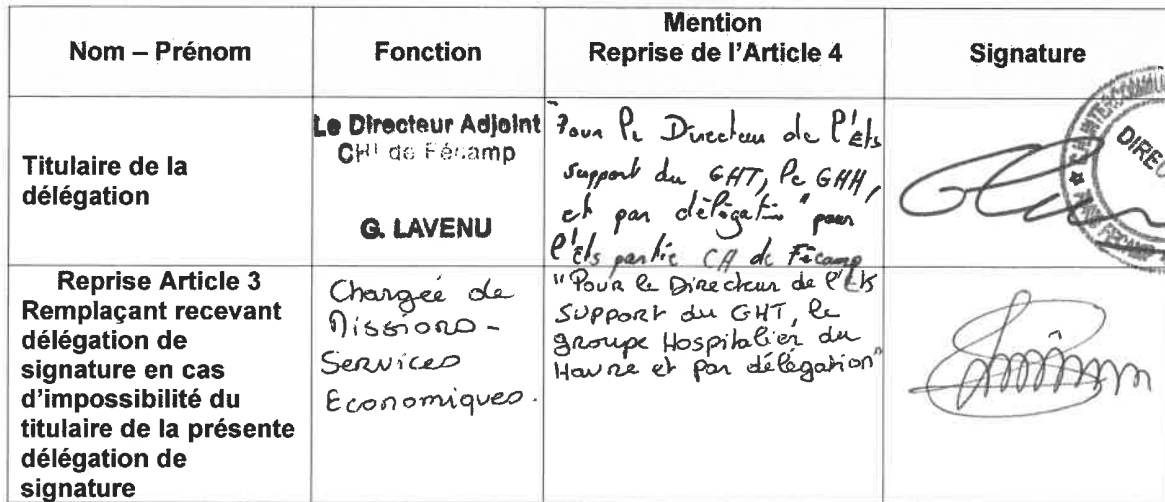 Nom – Prénom
Fonction
Mention
Reprise de l'Article 4
Signature
Titulaire de la
délégation
Le Directeur Adjoint
CHI de Fécamp
G. LAVENU
"Pour le Directeur de l'Ets
support du GHT, le GHH,
et par délégation" pour
l'Ets partie CH de Fécamp
DIREC
Reprise Article 3
Remplaçant recevant
délégation de
signature en cas
d'impossibilité du
titulaire de la présente
délégation de
signature
Chargée de
Missions -
Services
Economiques.
"Pour le Directeur de l'Ets
support du GHT, le
groupe Hospitalier du
Havre et par délégation"